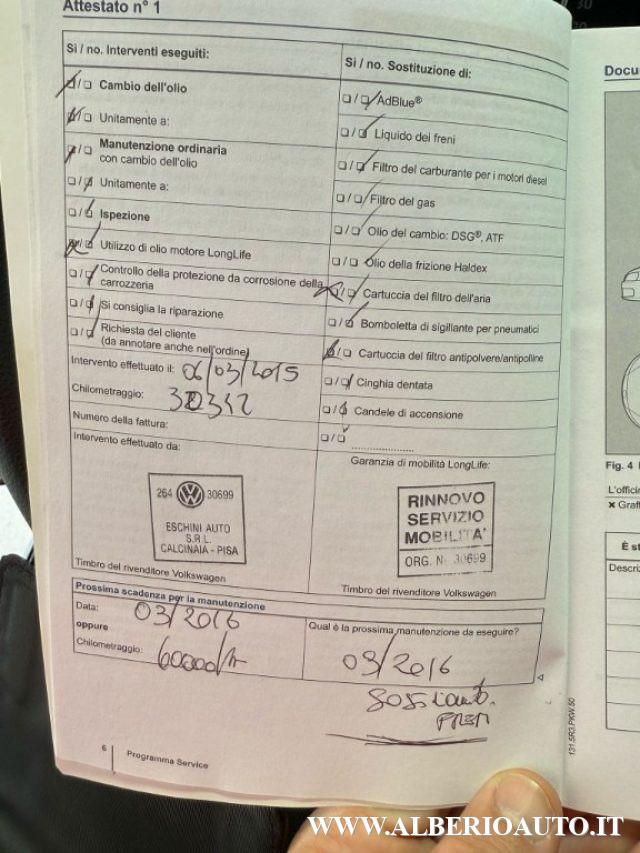 Attestato n° 1
Si / no. Interventi eseguiti:
Cambio dell'olio
Unitamente a:
Manutenzione ordinaria
con cambio dell'olio
Unitamente a:
Ispezione
Utilizzo di olio motore LongLife
Controllo della protezione da corrosione della
carrozzeria
Si consiglia la riparazione
Richiesta del cliente
(da annotare anche nell'ordine)
Intervento effettuato il: 06/03/2015
Chilometraggio:
Numero della fattura:
Intervento effettuato da:
264 VW 30699
ESCHINI AUTO
S.R.L.
CALCINAIA - PISA
Timbro del rivenditore Volkswagen
Si / no. Sostituzione di:
AdBlue®
Liquido dei freni
Filtro del carburante per i motori diesel
Filtro del gas
Olio del cambio: DSG®, ATF
Olio della frizione Haldex
Cartuccia del filtro dell'aria
Bomboletta di sigillante per pneumatici
Cartuccia del filtro antipolvere/antipolline
Cinghia dentata
Candele di accensione
Garanzia di mobilità LongLife:
RINNOVO
SERVIZIO
MOBILITA'
ORG. N. 30699
Timbro del rivenditore Volkswagen
Prossima scadenza per la manutenzione
Data: 03/2016
oppure
Chilometraggio: 60000
Qual è la prossima manutenzione da eseguire?
03/2016
6
Programma Service
131.5R3.PKW.50
Docu
Fig. 4
L'offici
Graf
È st
Descriz
WWW.ALBERIOAUTO.IT